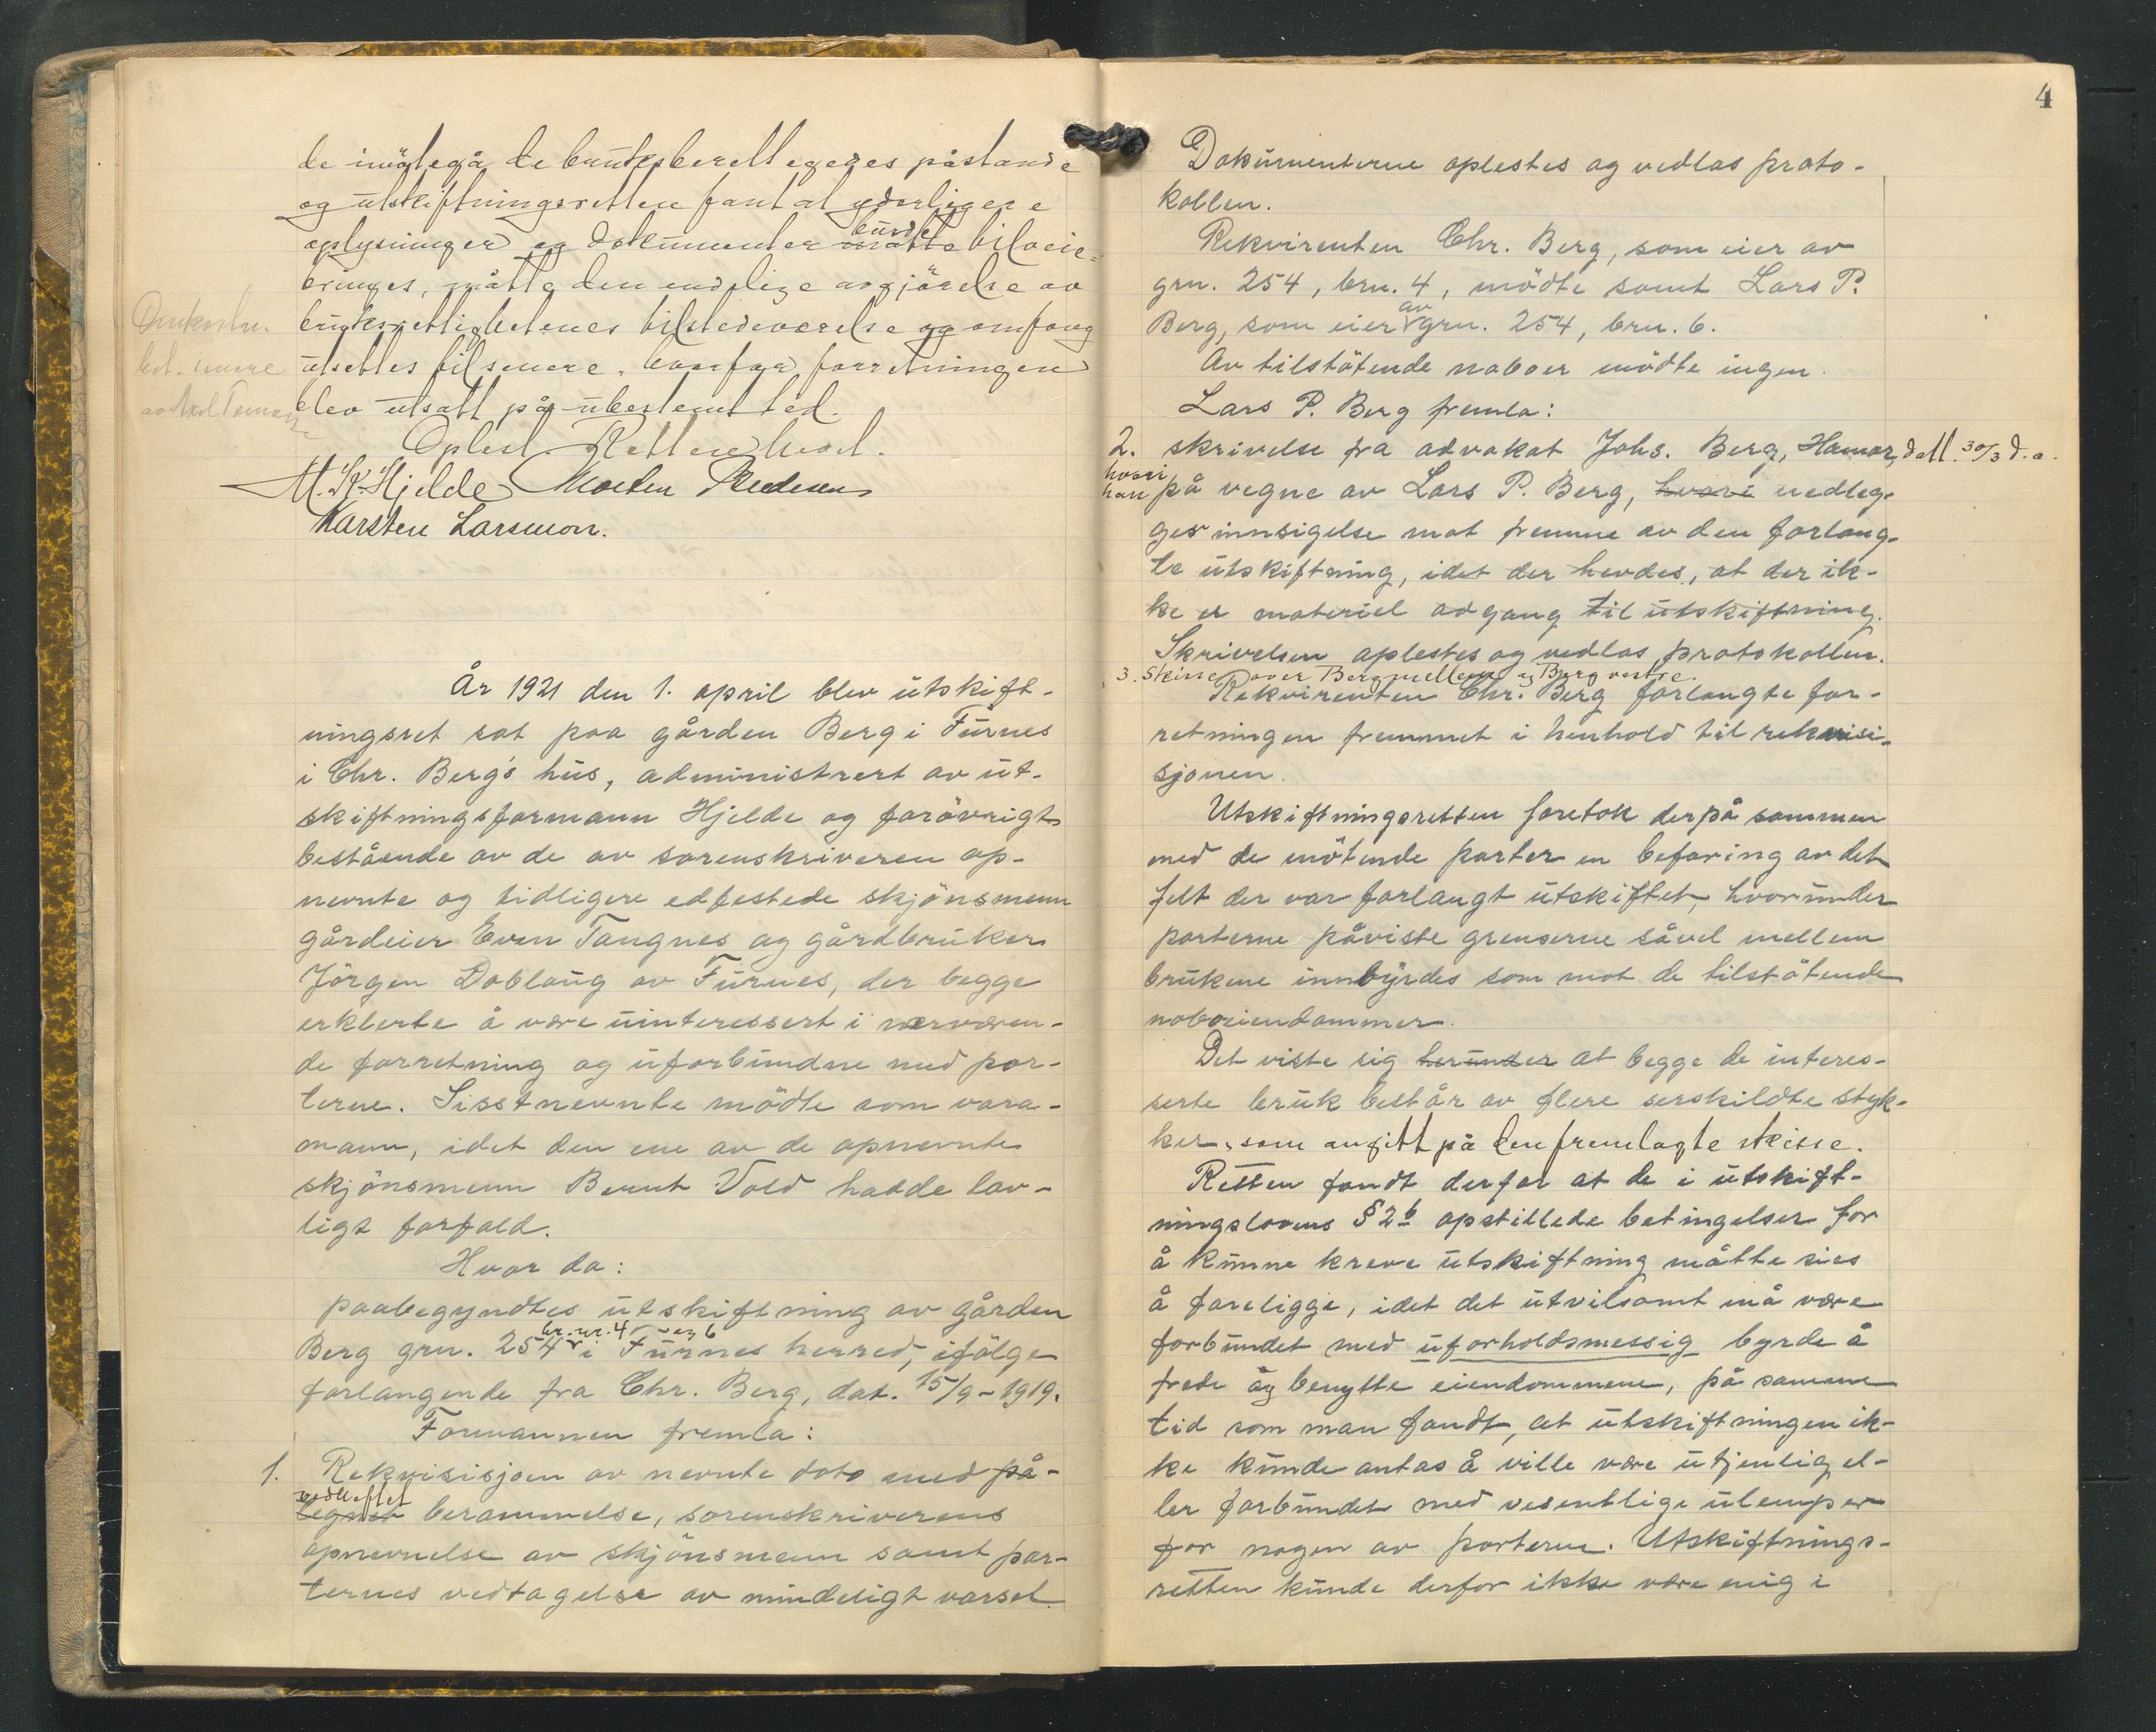 de imøtegå de bruksberettegedes påstande
og utskiftningsretten fant at yderligere
oplysninger og dokumenter måtte burde tilveie-
bringes, måtte den endelige avgjörelse av
bruksrettighetenes tilstedeværelse og omfang
utsettes til senere, hvorfor forretningen
blev utsatt på ubestemt tid.
Oplest. Retten hevet.
M. K. Hjelde Morten Pedersen
Karsten Larsmon.
År 1921 den 1. april blev utskift-
ningsret sat paa gården Berg i Furnes
i Chr. Berg's hus, administrert av ut-
skiftningsformann Hjelde og forövrigt
bestående av de av sorenskriveren op-
nevnte og tidligere edfestede skjönsmenn
gårdeier Even Tangnes og gårdbruker
Jörgen Doblaug av Furnes, der begge
erklerte å være uinteressert i nærværen-
de forretning og uforbundne med par-
terne. Sisstnevnte mödte som vara-
mann, idet den ene av de opnevnte
skjönsmenn Bernt Vold hadde lov-
ligt forfald.
Hvor da:
paabegyndtes utskiftning av gården
br. nr. 4 og 6
Berg grn. 254 i Furnes herred, ifölge
forlangende fra Chr. Berg, dat. 15/9-1919.
Formannen fremla:
1. Rekvisisjon av nevnte dato med på-
vedheftet
tegnet berammelse, sorenskriverens
opnevnelse av skjönsmenn samt par-
ternes vedtagelse av mindeligt varsel
4
Dokumenterne oplestes og vedlas proto-
kollen.
Rekvirenten Chr. Berg, som eier av
grn. 254, brn. 4, mödte samt Lars P.
Berg, som eier av grn. 254, brn. 6.
Av tilstötende naboer mödte ingen.
Lars P. Berg fremla:
2. skrivelse fra advokat Johs. Berg, Hamar, datt. 30/3 d.a.
hvori
han på vegne av Lars P. Berg, hvori nedleg-
ges innsigelse mot fremme av den forlang-
te utskiftning, idet der hevdes, at der ik-
ke er materiel adgang til utskiftning.
Skrivelsen oplestes og vedlas protokollen.
3. Skisse over Berg mellem og Berg vestre.
Rekvirenten Chr. Berg forlangte for-
retningen fremmet i henhold til rekvisi-
sjonen.
Utskiftningsretten foretok derpå sammen
med de mötende parter en befaring av det
felt der var forlangt utskiftet, hvorunder
parterne påviste grenserne såvel mellem
brukene innbyrdes som mot de tilstötende
naboeiendommer.
Det viste sig herunder at begge de interes-
serte bruk består av flere serskildte styk-
ker, som angitt på den fremlagte skisse.
Retten fandt derfor at de i utskift-
ningslovens § 2 b opstillede betingelser for
å kunne kreve utskiftning måtte sies
å foreligge, idet det utvilsomt må være
forbundet med uforholdsmessig byrde å
frede og benytte eiendommene, på samme
tid som man fandt, at utskiftningen ik-
ke kunde antas å ville være utjenlig el-
ler forbundet med vesentlige ulemper
for nogen av parterne. Utskiftnings-
retten kunde derfor ikke være enig i